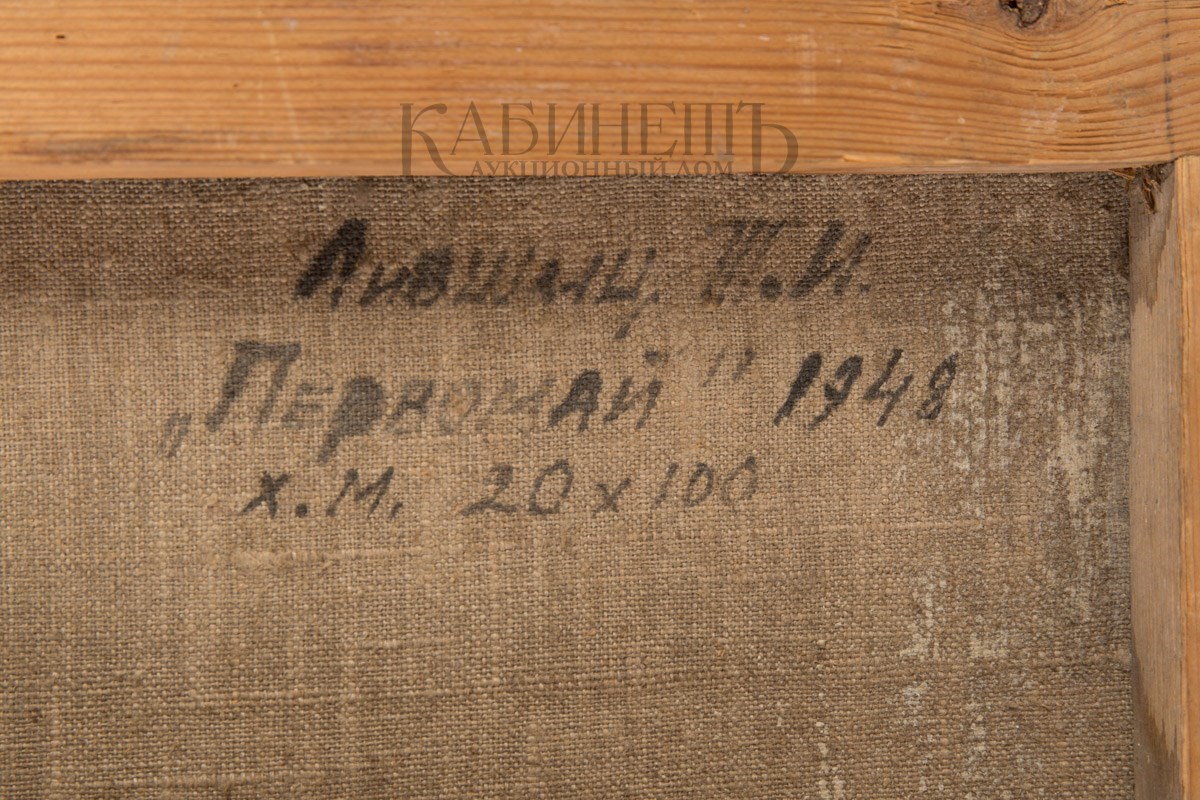 КАБИНЕТЪ
АУКЦИОННЫЙ ДОМ
Лившиц Т.И.
„Первомай" 1948
х.м. 20х100